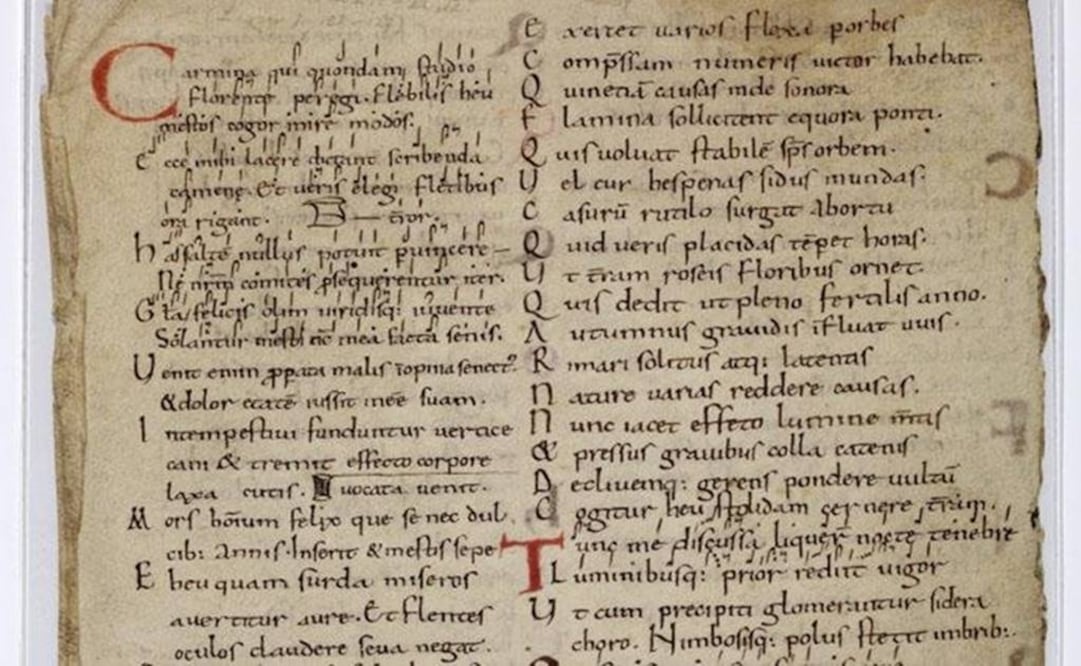 Carmina qui quondam studio
florente peregi. Flebilis heu
mestos cogor inire modos.
Ecce mihi lacere dictant scribenda
camene. Et ueris elegi fletibus
ora rigant.
has saltē nullus potuit puincere
Ne nr̄m comites psequerentur iter.
Gl'a felicis olim uiridisq: iuuente
Solantur mesti nc̄ mea facta senis.
Uenit enim ppata malis īopina senect?
&dolor etatē iussit inēē suam.
Intempestiui funduntur uertice
cani & tremit effecto corpore
laxa cutis. uocata uenit.
Mors hōium felix que se nec dul
cib: Annis. Inserit &mestis sepe
Eheu quam surda miseros
auertitur aure. Et flentes
oculos claudere seua negat.
Exercet uarios flexa porbes
Comp̄ssam numeris uictor habebat.
Quinetiā causas unde sonora
Flamina sollicitent equora ponti.
Quis uoluat stabilē sps orbem.
Uel cur hesperias sidus in undas.
Casurū rutilo surgat Abortu
Quid ueris placidas tēpet horas.
Ut t̄ram roseis floribus ornet.
Quis dedit ut pleno fertilis anno.
Autumnus grauidis īfluat uuis.
Rimari solitus atq: latentis
Nature uarias reddere causas.
Nunc iacet effeto lumine m̄tis
& pressus grauibus colla catenis
Decliuemq: gerens pondere uultū
Cogitur heu stolidam cernere t̄ram.
Tunc me discussa liquer nocte tenebre
Luminibusq: prior rediit uigor
Ut cum precipiti glomerantur sidera
choro. Nimbosisq: polus stetit imbrib:.